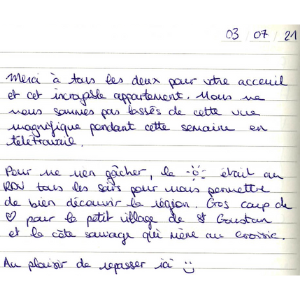 03 07 21
Merci à tous les deux pour votre acceuil
et cet incroyable appartement. Nous ne
nous sommes pas lassés de cette vue
magnifique pendant cette semaine en
télétravail.
Pour ne rien gâcher, le ☼ était au
RDV tous les soirs pour nous permettre
de bien découvrir la région. Gros coup de
♡ pour le petit village de St Goustan
et la côte sauvage qui mène au croisic.
Au plaisir de repasser ici ☺